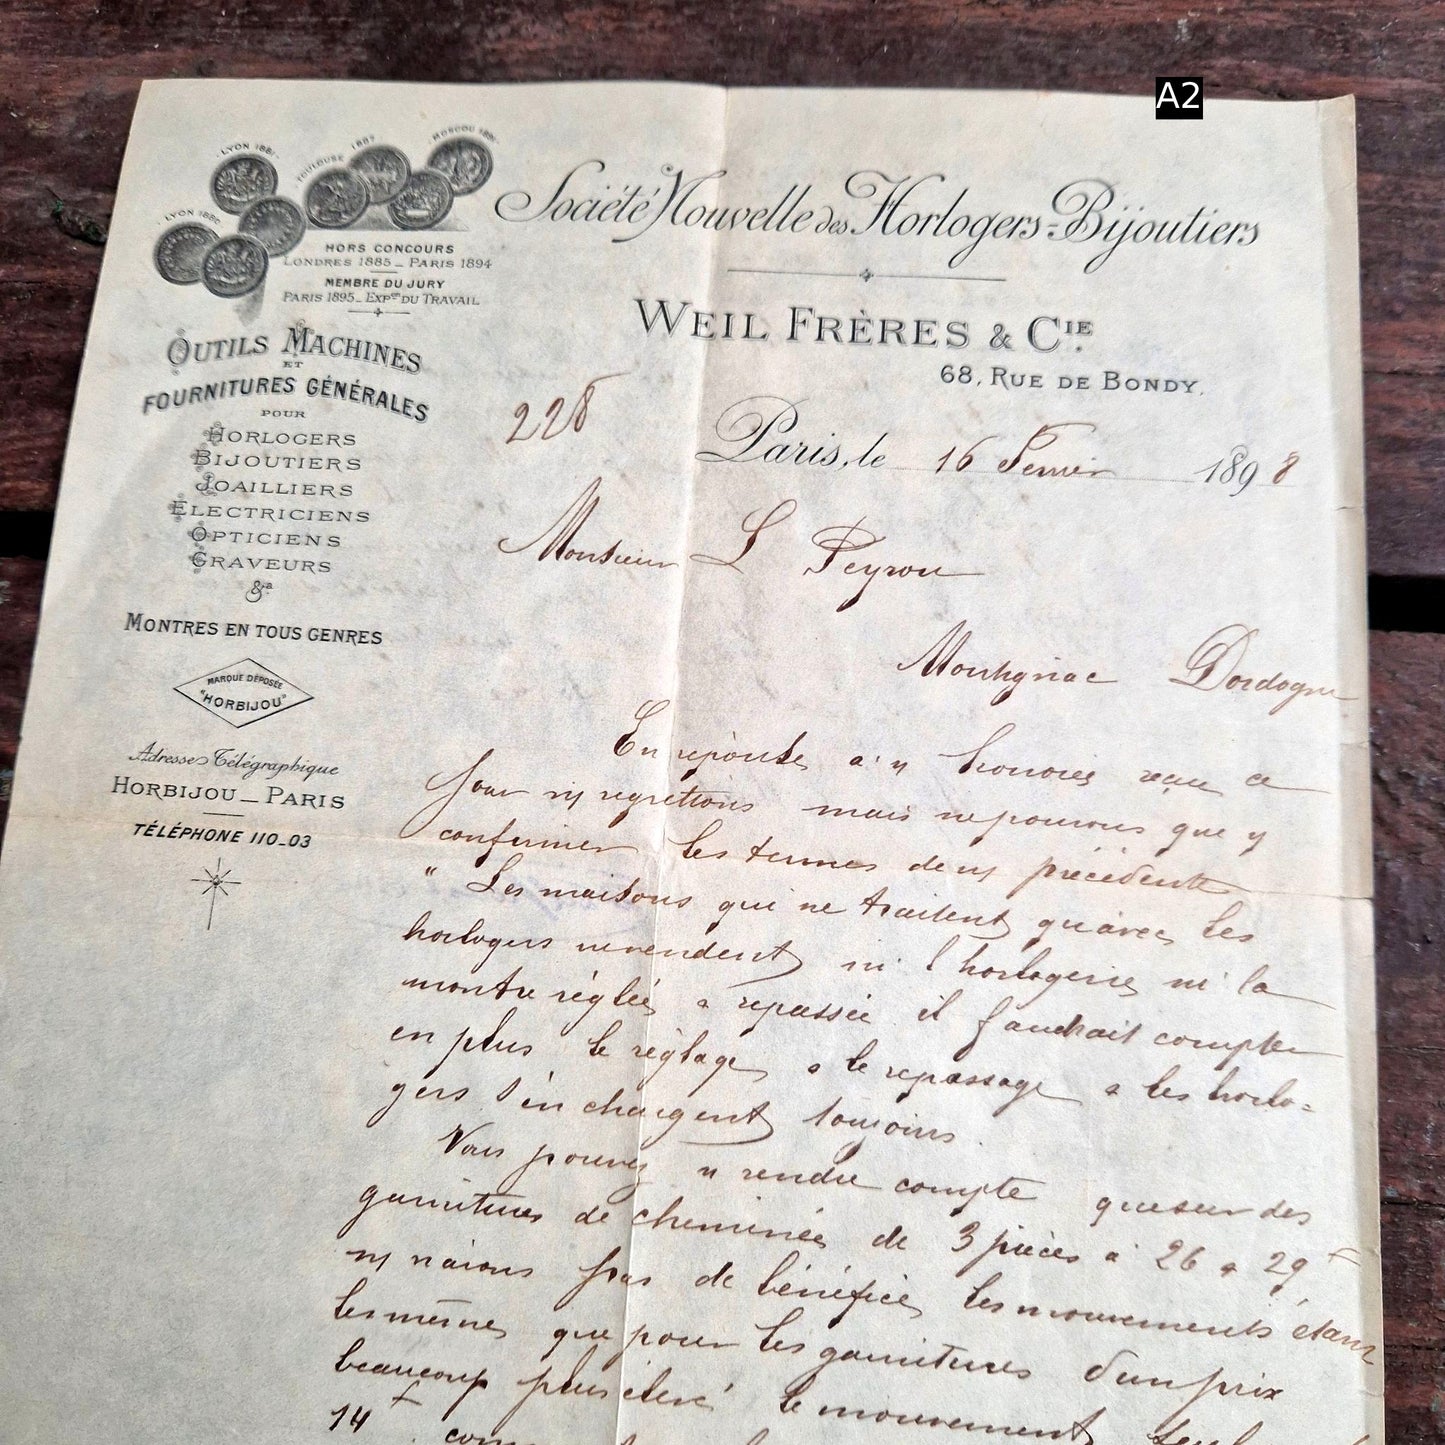 A2
LYON 1881
TOULOUSE 1887
MOSCOU 1891
LYON 1880
HORS CONCOURS
LONDRES 1885_PARIS 1894
MEMBRE DU JURY
PARIS 1895_EXPON DU TRAVAIL
Société Nouvelle des Horlogers-Bijoutiers
WEIL FRÈRES & CIE
68, RUE DE BONDY.
OUTILS MACHINES
ET
FOURNITURES GÉNÉRALES
POUR
HORLOGERS
BIJOUTIERS
JOAILLIERS
ELECTRICIENS
OPTICIENS
GRAVEURS
&a
MONTRES EN TOUS GENRES
MARQUE DÉPOSÉE
"HORBIJOU"
Adresse Télégraphique
HORBIJOU_PARIS
TÉLÉPHONE 110_03
228
Paris, le 16 Fevrier 1898
Monsieur L Peyrou
Montignac Dordogne
En reponse a v honorée reçue ce
jour ns regrettons mais ne pouvons que
confirmer les termes de ns précédente
" Les maisons qui ne traitent qu'avec les
horlogers ne vendent ni l'horlogerie ni la
montre réglée & repassée il faudrait compter
en plus le réglage & le repassage & les horlo=
gers s'en chargent toujours.
Vous pouvez v rendre compte que sur des
garnitures de cheminée de 3 pièces à 26 & 29 f
ns n'avons pas de bénéfice les mouvements étant
les mêmes que pour les garnitures d'un prix
beaucoup plus élevé le mouvement seul
14 f